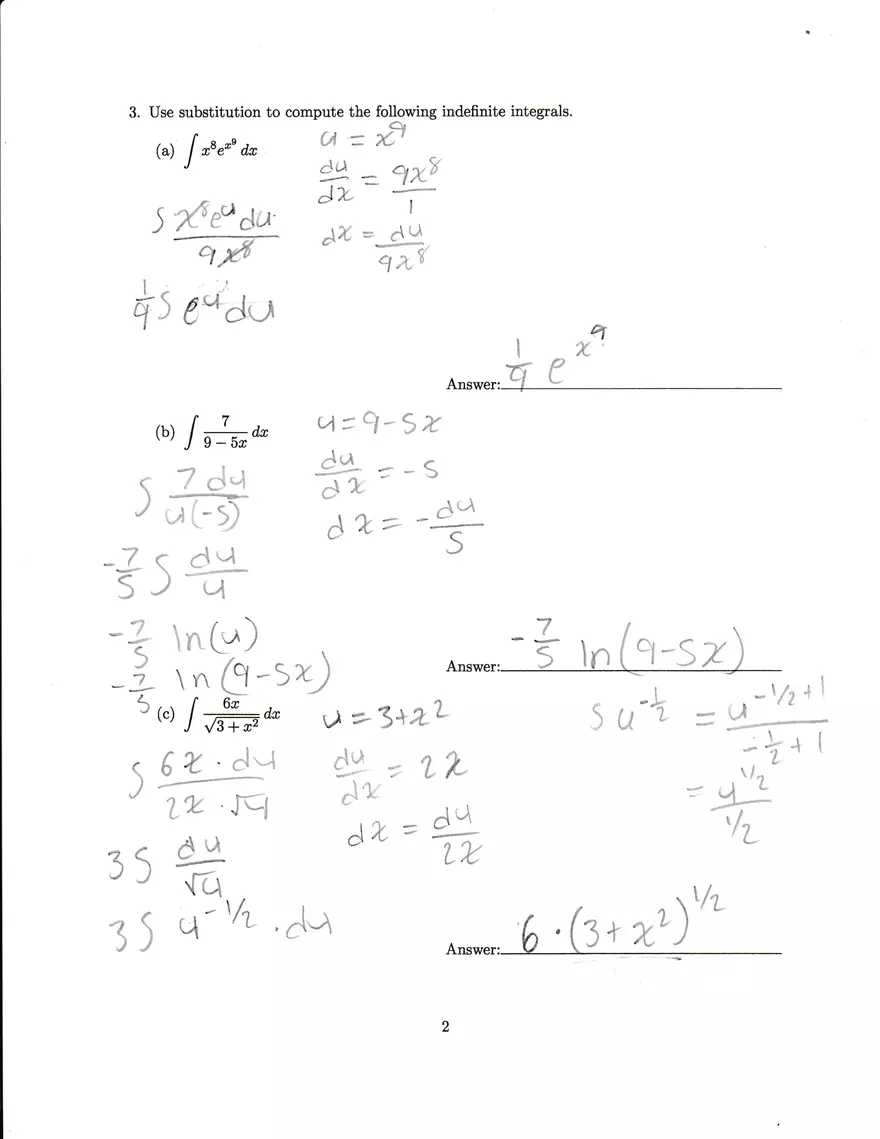 3. Use substitution to compute the following indefinite integrals.
(a) ∫ x⁸e^(x⁹) dx
u = x⁹
du/dx = 9x⁸/1
∫ x⁸eᵘ du / 9x⁸
dx = du/9x⁸
1/9 ∫ eᵘ du
Answer: 1/9 e^(x⁹)
(b) ∫ 7/(9 − 5x) dx
u = 9 − 5x
du/dx = −5
∫ 7 du / u(−5)
dx = −du/5
−7/5 ∫ du/u
−7/5 ln(u)
−7/5 ln(9−5x)
Answer: −7/5 ln(9−5x)
(c) ∫ 6x/√(3 + x²) dx
u = 3+x²
∫ u^(−1/2) = u^(−1/2+1) / (−1/2+1)
∫ 6x · du / 2x · √u
du/dx = 2x
= u^(1/2) / (1/2)
dx = du/2x
3 ∫ du/√u
3 ∫ u^(−1/2) · du
Answer: 6 · (3+x²)^(1/2)
2